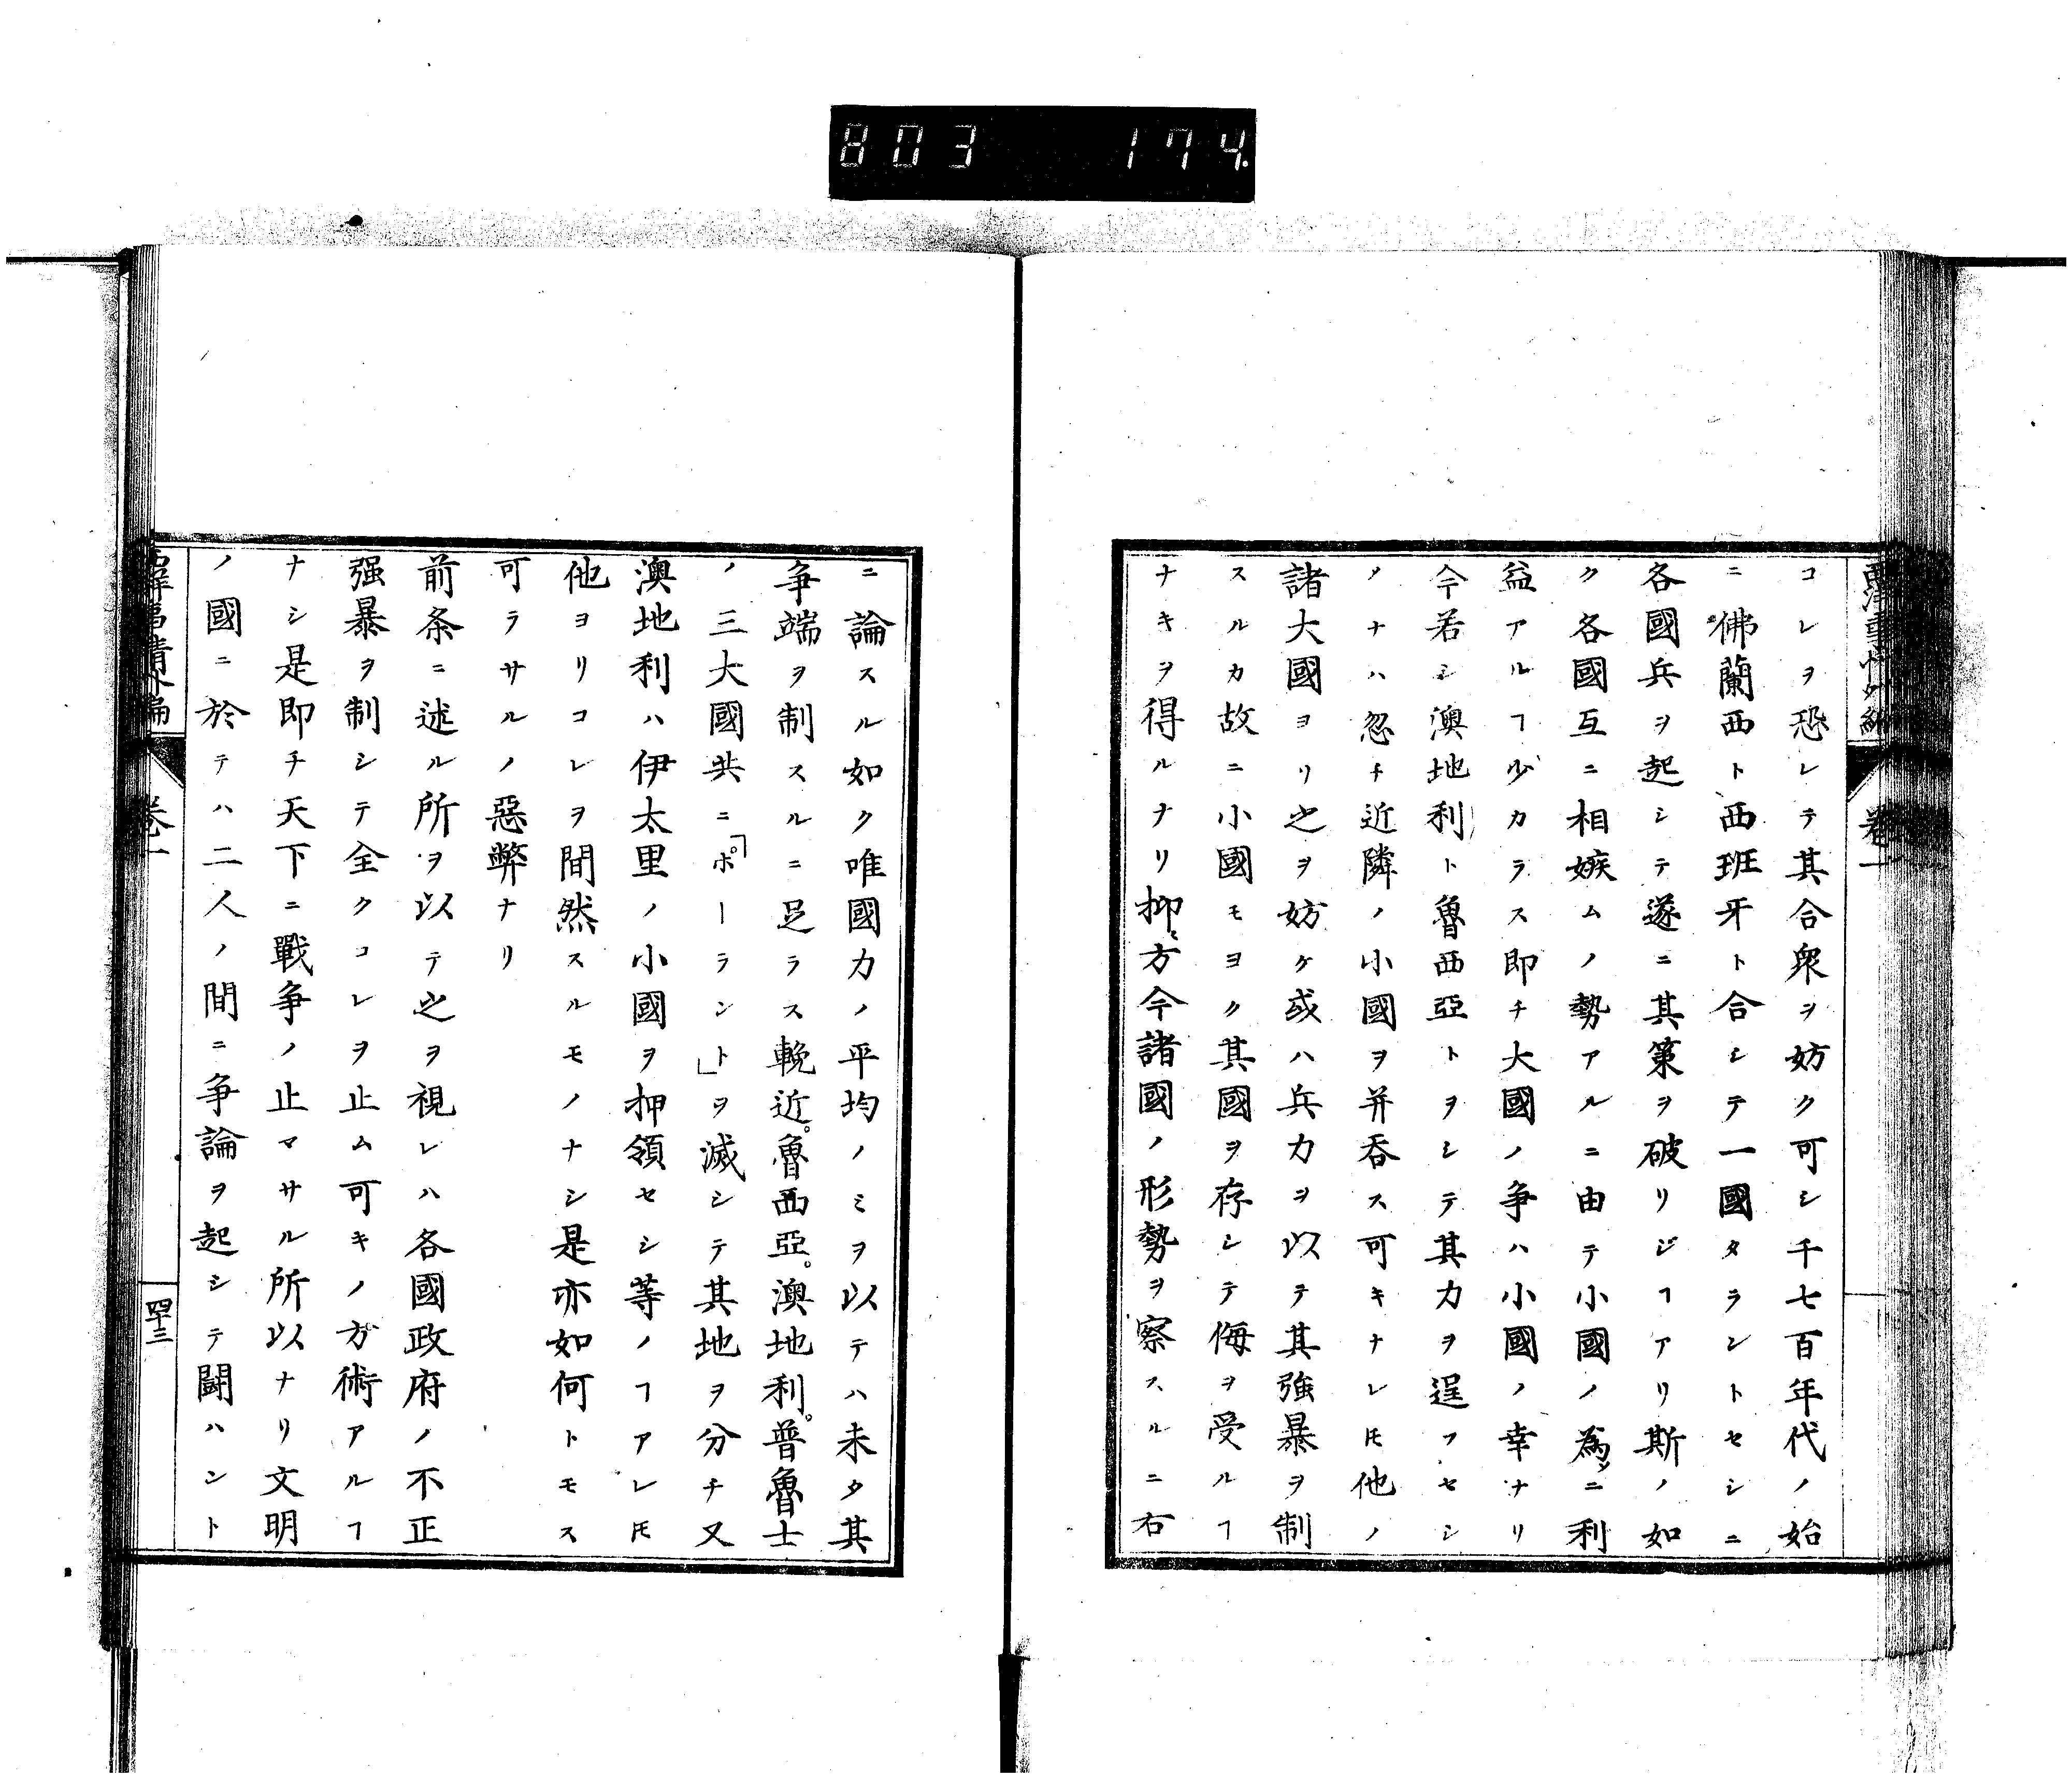 803 174
西洋事情外編
卷一
コレヲ恐レテ其合衆ヲ妨ク可シ千七百年代ノ始
ニ佛蘭西ト西班牙ト合シテ一國タラントセシニ
各國兵ヲ起シテ遂ニ其策ヲ破リシヿアリ斯ノ如
ク各國互ニ相嫉ムノ勢アルニ由テ小國ノ為メニ利
益アルヿ少カラス即チ大國ノ爭ハ小國ノ幸ナリ
今若シ澳地利ト魯西亞トヲシテ其力ヲ逞フセシ
メナハ忽チ近隣ノ小國ヲ并吞ス可キナレ𪜈他ノ
諸大國ヨリ之ヲ妨ケ或ハ兵力ヲ以テ其強暴ヲ制
スルカ故ニ小國モヨク其國ヲ存シテ侮ヲ受ルヿ
ナキヲ得ルナリ抑〻方今諸國ノ形勢ヲ察スルニ右
ニ論スル如ク唯國力ノ平均ノミヲ以テハ未タ其
爭端ヲ制スルニ足ラス輓近。魯西亞。澳地利。普魯士
ノ三大國共ニ「ポーラント」ヲ滅シテ其地ヲ分チ又
澳地利ハ伊太里ノ小國ヲ押領セシ等ノヿアレ𪜈
他ヨリコレヲ間然スルモノナシ是亦如何トモス
可ラサルノ惡弊ナリ
前条ニ述ル所ヲ以テ之ヲ視レハ各國政府ノ不正
强暴ヲ制シテ全クコレヲ止ム可キノ方術アルヿ
ナシ是即チ天下ニ戰爭ノ止マサル所以ナリ文明
ノ國ニ於テハ二人ノ間ニ爭論ヲ起シテ闘ハント
西洋事情外編
卷一
四十三